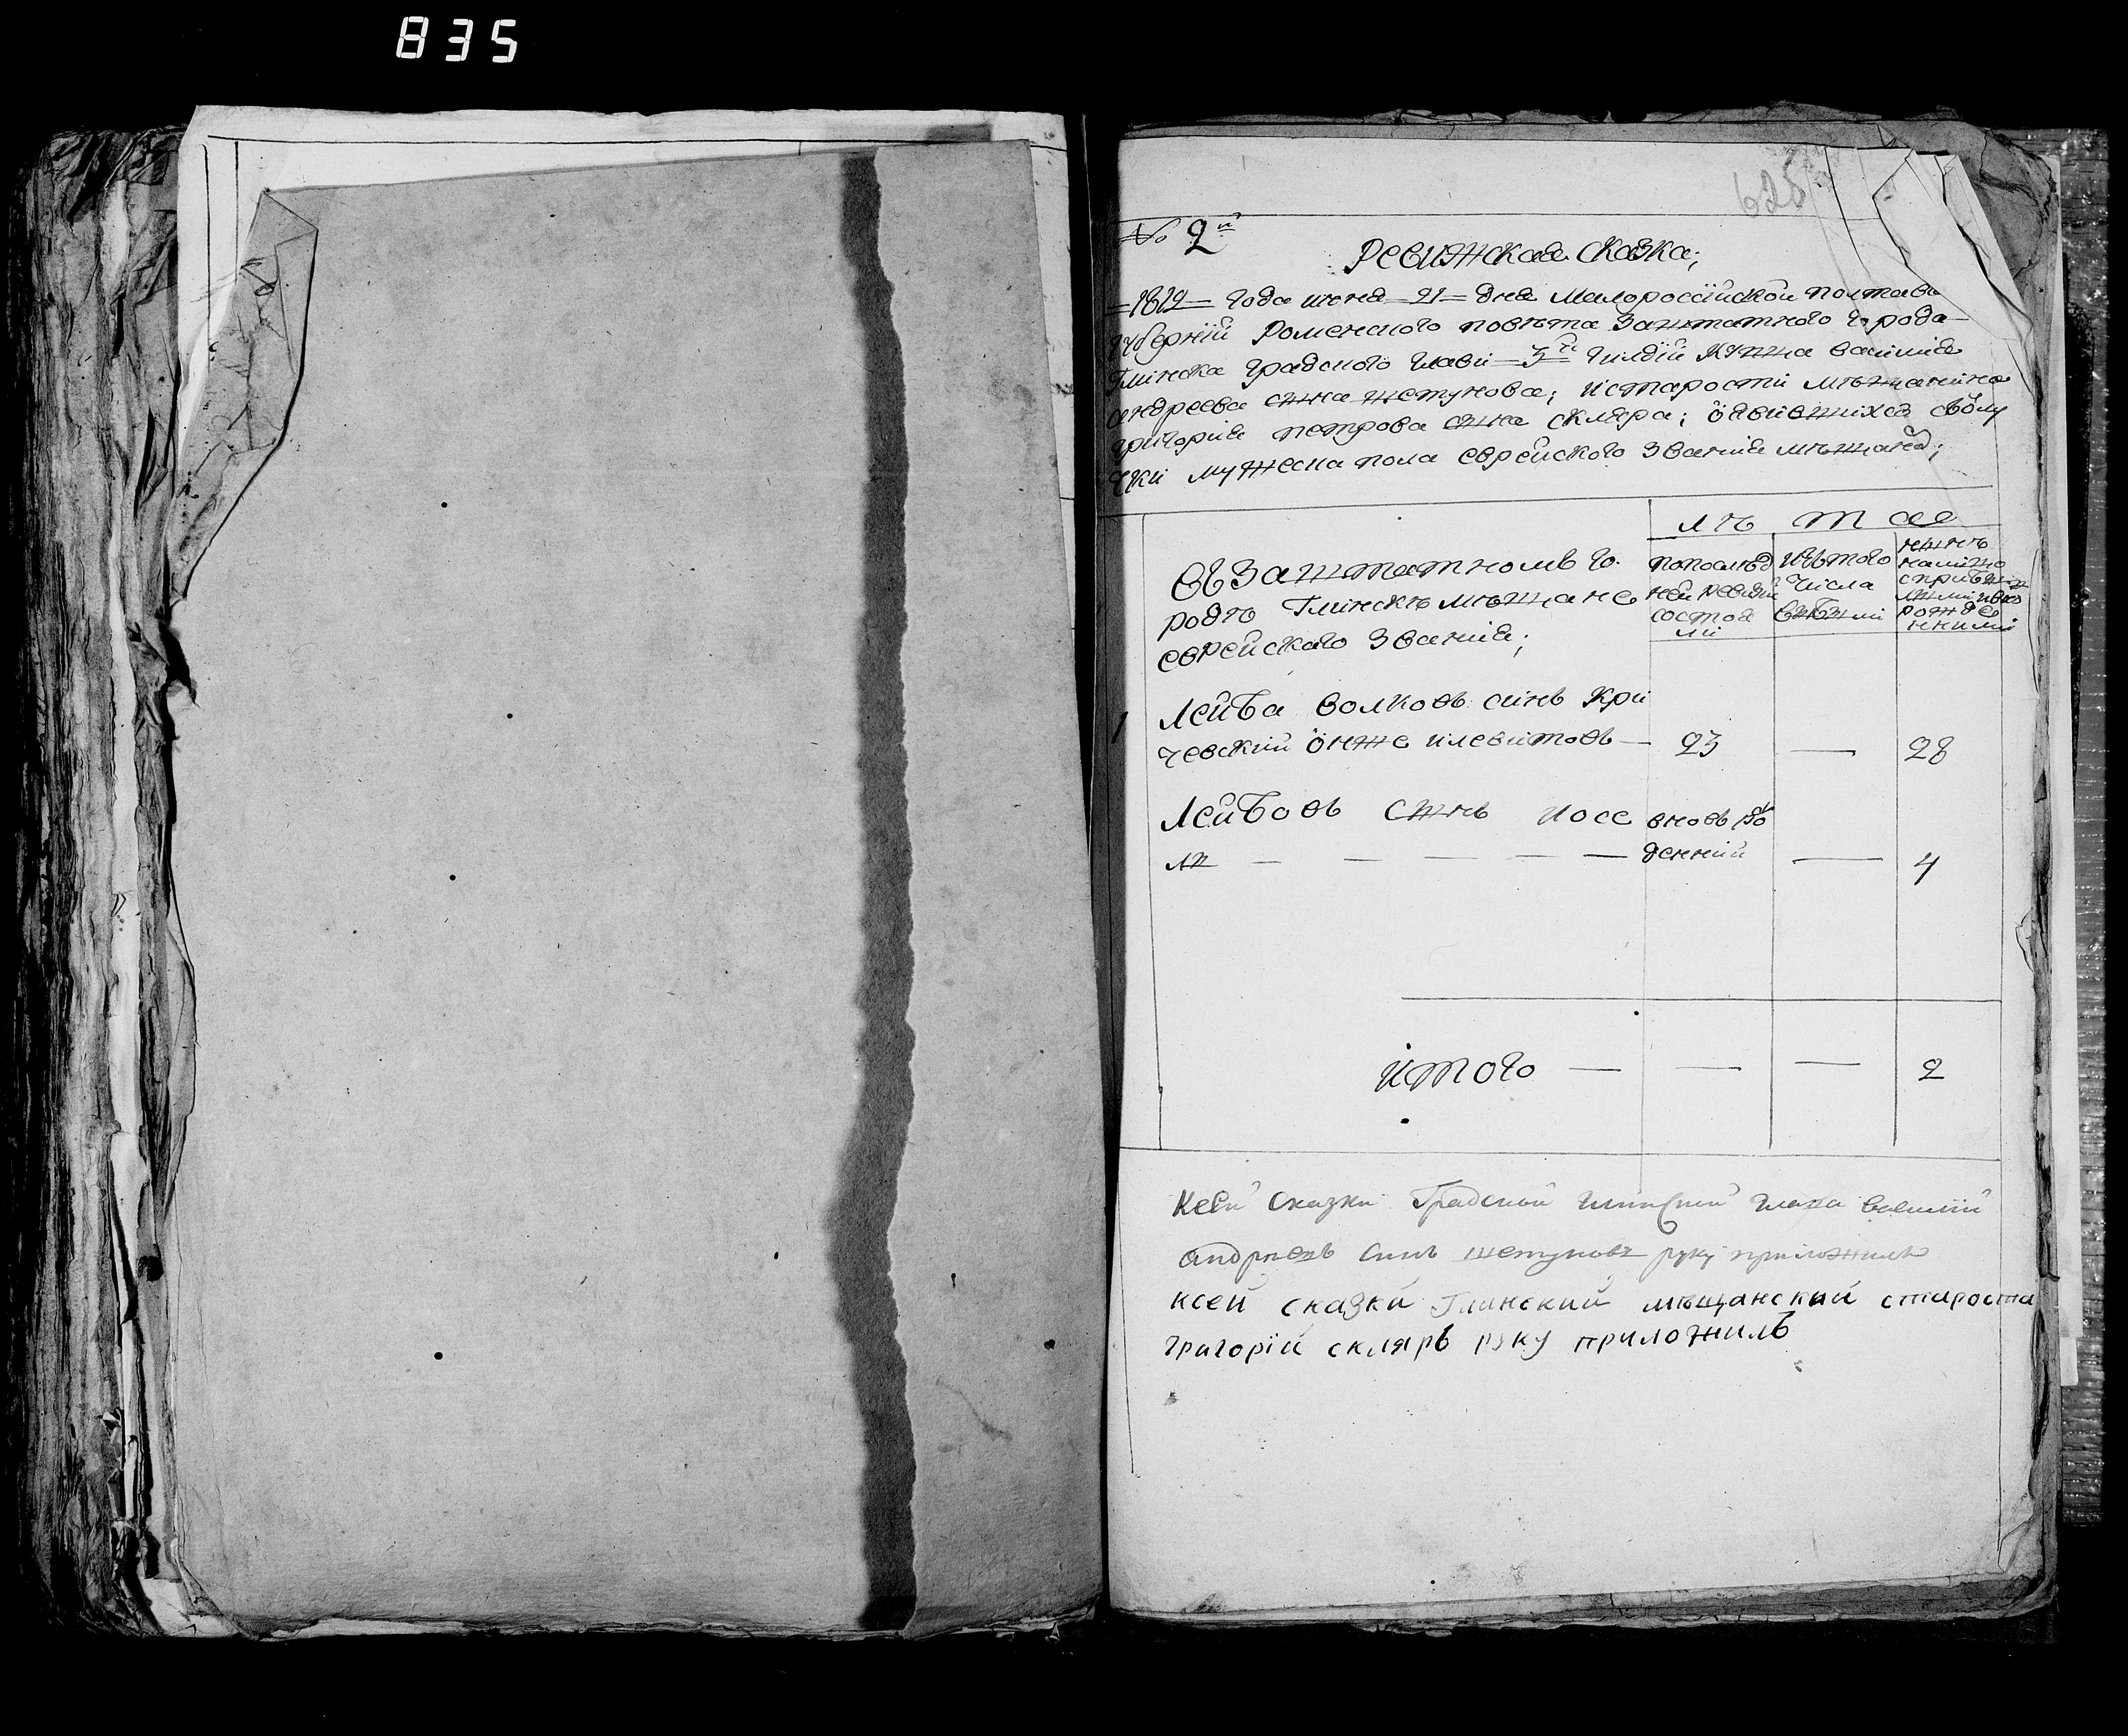 835
625
№ 2й
Ревижская сказка;
1812 года июня 21 дня Малоросиӥской полтавъ
губерніӥ Роменского повѣта Заштатного города
Глинска градского главы 3й гилдіи купца василия
андреева сына шетунова; и старосты мѣщанина
григория петрова сына скляра; о явившихся
мужеска пола еврейского звания мѣщанъ;
лѣ та
въ Заштатномъ го
родѣ Глинскѣ мѣщане
еврейскаго звания;
по послѣд
ней ревизіи
состоя
ли
изъ того
числа
выбыли
нынѣ
налицо
с прибы
лыми и вно
рожде
нными
1
Лейба волковъ синъ Кри
чевский онже и левитовъ — 23 — 28
Лейбовъ сынъ иосе
вновь ро
ль — — — — — денний — 4
итого — — — 2
К сей сказки Градской глинский глава василий
андреевъ синъ шетуновъ руку приложилъ
ксей сказки Глинский мѣщанский староста
григорій скляръ руку приложилъ